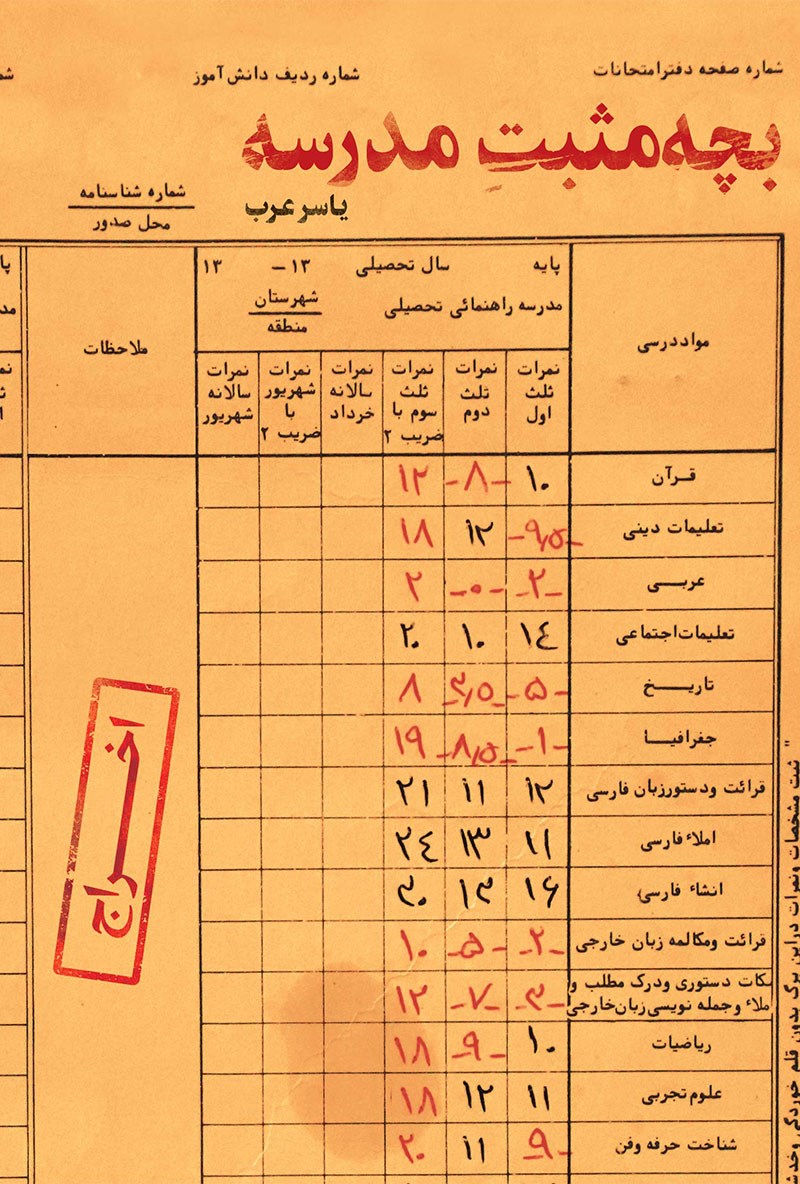 شماره صفحه دفتر امتحانات
شماره ردیف دانش‌آموز
بچه مثبتِ مدرسه
یاسر عرب
شماره شناسنامه
محل صدور
مواد درسی
پایه سال تحصیلی ۱۳ – ۱۳
مدرسه راهنمائی تحصیلی
شهرستان
منطقه
ملاحظات
نمرات ثلث اول
نمرات ثلث دوم
نمرات ثلث سوم با ضریب ۲
نمرات سالانه خرداد
نمرات شهریور با ضریب ۲
نمرات سالانه شهریور
قرآن ۱۰ -۸- ۱۲
تعلیمات دینی -۹٫۵- ۱۲ ۱۸
عربی -۲- -۰- ۲
تعلیمات اجتماعی ۱٤ ۱۰ ۲۰
تاریخ -۵- -۳٫۵- ۸
جغرافیا -۱- -۸٫۵- ۱۹
قرائت ودستورزبان فارسی ۱۲ ۱۱ ۲۱
املاء فارسی ۱۱ ۱۳ ۲٤
انشاء فارسی ۱۶ ۱۳ ۳۰
قرائت ومکالمه زبان خارجی -۲- -۵- ۱۰
نکات دستوری ودرک مطلب و
املاء وجمله نویسی زبان خارجی -۳- -۷- ۱۲
ریاضیات ۱۰ -۹- ۱۸
علوم تجربی ۱۱ ۱۲ ۱۸
شناخت حرفه وفن -۹- ۱۱ ۲۰
اخراج
" ثبت مشخصات ونمرات دراین برگ بدون قلم خوردگی وخدشه